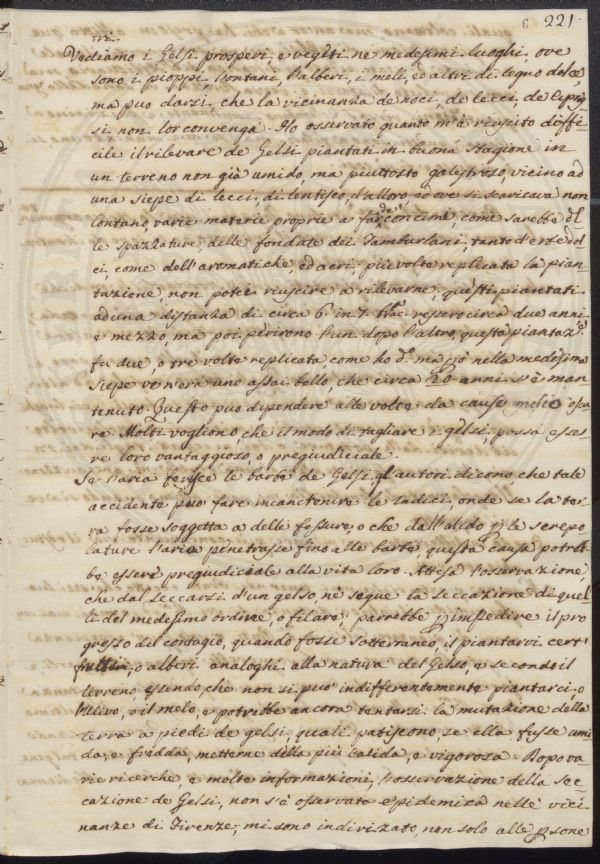 6 221.
tri.
Vediamo i Gelsi prosperi, e vegeti ne medesimi luoghi, ove
sono i pioppi, l'ontani, l'alberi, i meli, ed altri di legno dolce,
ma può darsi, che la vicinanza de noci, de lecci, de Cipres
si, non lor convenga. Ho osservato quanto m'è riuscito diffi-
cile il rilevare de Gelsi piantati in buona stagione in
un terreno non già umido, ma piuttosto galestroso, vicino ad
una siepe di lecci, di lentisco, d'alloro, ed ove si scaricava non
lontano, varie materie proprie a far concime, come sarebbe
le spazzature, delle fondate dei Tamburlani, tanto d'erbe dol
ci, come dell'aromatiche, ed acri, più volte replicata la pian-
tazione, non potei riuscire a rilevarne: questi piantati
ad una distanza di circa 6 in 7 resser circa due anni
e mezzo, ma poi perirono l'un dopo l'altro, questa piantaz.e
fu due, o tre volte replicata, come ho d.o ma nella medesima
siepe ve n'era uno assai bello, che circa 20 anni s'è man-
tenuto. Questo può dipendere alle volte da cause molto oscu
re. Molti vogliono che il modo di tagliare i gelsi, possa esse
re loro vantaggioso, o pregiudiciale.
Se l'aria ferisce le barbe de Gelsi, gl'autori dicono, che tale
accidente può fare incancrenire le radici, onde se la ter
ra fosse soggetta a delle fessure, o che dall'alido le screpo
lature l'aria penetrasse fino alle barbe, questa causa potreb
be essere pregiudiciale alla vita loro. Attesa l'osservazione,
che dal seccarsi d'un gelso, nè segue la seccazione di quel
li del medesimo ordine, o filare; parrebbe impedire il pro
gresso del contagio, quando fosse sotterraneo, il piantarvi certi
frutti, o alberi analoghi alla natura del Gelso, e secondo il
terreno, essendo che non si può indifferentemente piantarci, o
l'ulivo, o il melo, e potrebbe ancora tentarsi la mutazione della
terra a piedi de gelsi, quali patiscono, se ella fusse umi
da, e fredda, metterne della più calida, e vigorosa. Dopo va
rie ricerche, e molte informazioni, l'osservazione della sec
cazione de Gelsi, non s'è osservata epidemica nelle vici
nanze di Firenze; mi sono indirizato, non solo alle persone